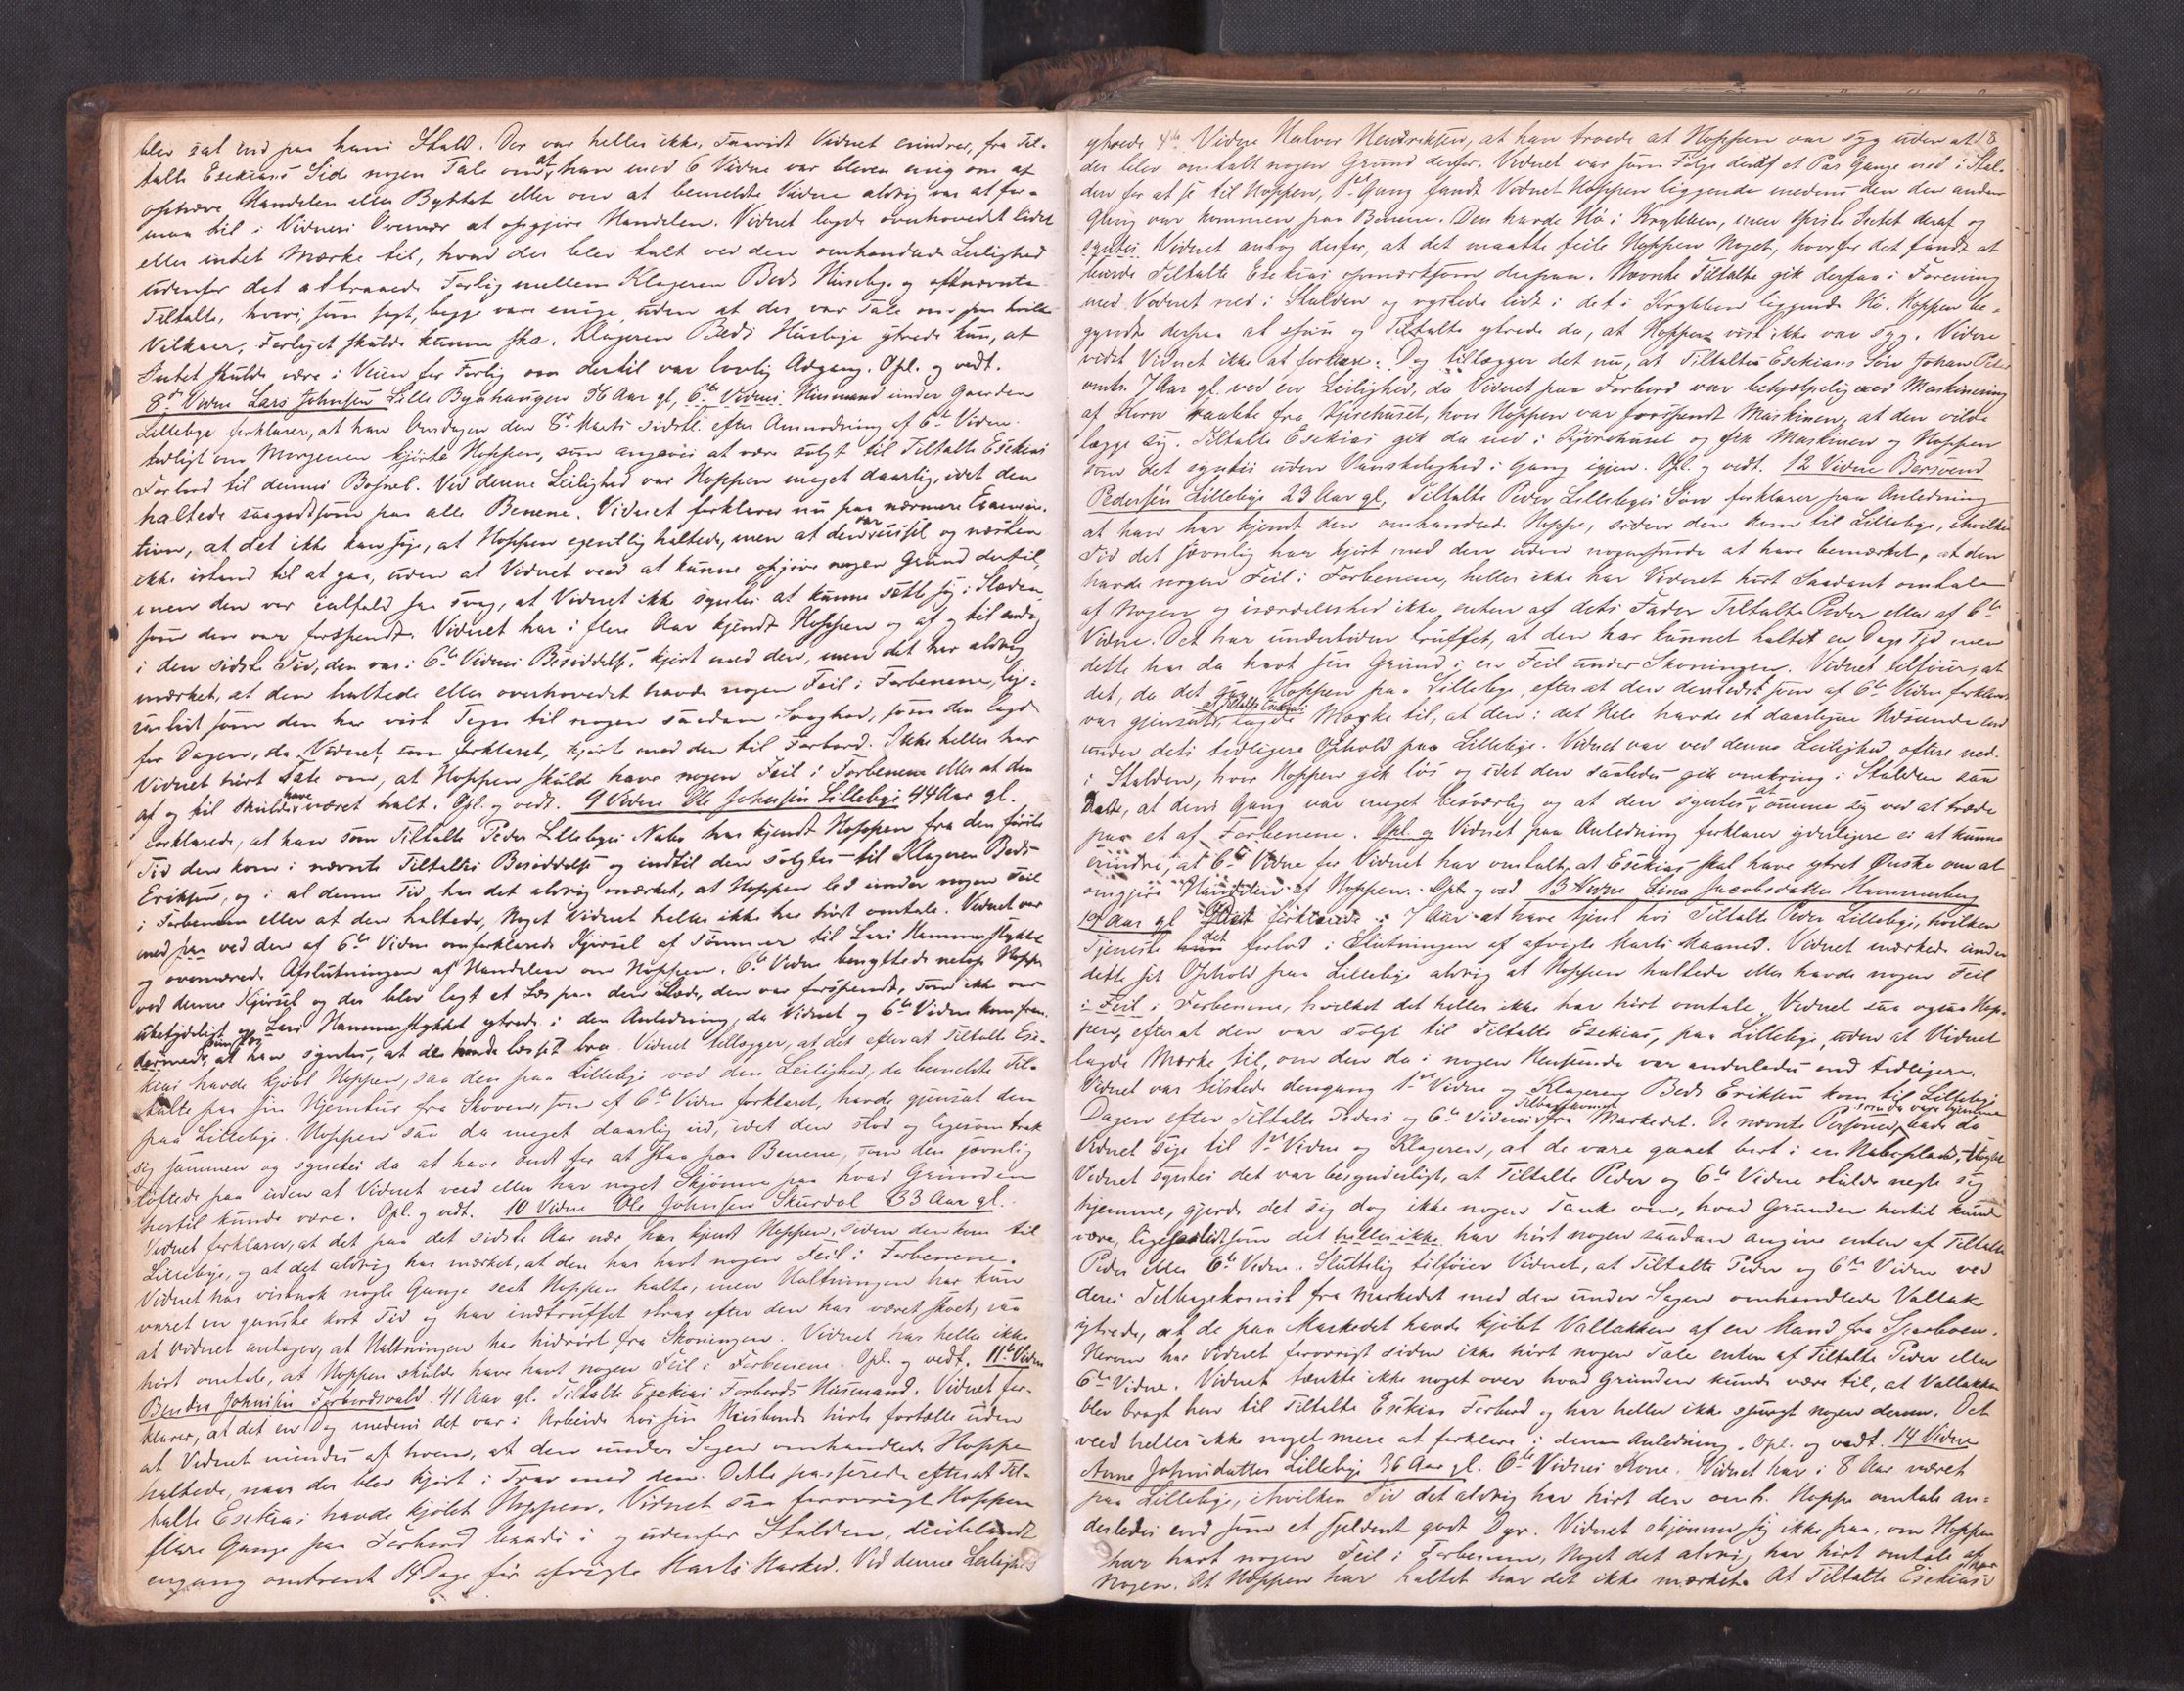 blev sat ind paa hans Stald. Der var heller ikke, saavidt Vidnet erindrer, fra Til-
talte Esekias's Side nogen Tale om, at han med 6 Vidne var bleven enig om at
ophæve Handelen eller Byttet eller om at bemeldte Vidne aldrig var at for-
maa til i Vidnets Overvær at opgjøre Handelen. Vidnet lagde overhovedet lidet
eller intet Mærke til, hvad der blev talt ved den omhandlede Leilighed
udenfor det attraaede Forlig mellem Klageren Beds Husebye og oftnævnte
Tiltalte, hvori, som sagt, begge vare enige, uden at der var Tale om paa hvilke
Vilkaar, Forliget skulde kunne ske. Klageren Beds Husebye ytrede kun, at
Intet skulde være i Veien for Forlig om dertil var lovlig Adgang. Opl. og vedt.
8de Vidne Lars Johnsen Lille Byehaugen 36 Aar gl, 6te Vidnes Husmand under Gaarden
Lillebye forklarer, at han Onsdagen den 8de Marts sidstl. efter Anmodning af 6te Vidne
tidligt om Morgenen kjørte Hoppen, som angaves at være solgt til Tiltalte Esekias
Forbord til dennes Bopæl. Ved denne Leilighed var Hoppen meget daarlig, idet den
haltede saagodtsom paa alle Benene. Vidnet forklarer nu paa nærmere Examina-
tion, at det ikke kan sige, at Hoppen egentlig haltede, men at den var ussel og næsten
ikke istand til at gaa, uden at Vidnet veed at kunne opgive nogen Grund dertil,
men den var ialfald saa svag, at Vidnet ikke syntes at kunne sætte sig i Slæden
som den var forspændt. Vidnet har i flere Aar kjendt Hoppen og af og til endog
i den sidste Tid, den var i 6te Vidnes Besiddelse, kjørt med den, men det har aldrig
mærket, at den haltede eller overhovedet havde nogen Feil i Forbenene, lige-
saalidt som den har vist Tegn til nogen saadan Svaghed, som den lagde
for Dagen, da Vidnet, som forklaret, kjørte med den til Forbord. Ikke heller har
Vidnet hørt Tale om, at Hoppen skulde have nogen Feil i Forbenene eller at den
af og til skulde have været halt. Opl. og vedt. 9 Vidne Ole Johnsen Lillebye 44 Aar gl.
forklarede, at han som Tiltalte Peder Lillebyes Nabo har kjendt Hoppen fra den første
Tid den kom i nævnte Tiltaltes Besiddelse og indtil den solgtes til Klageren Beds
Eriksen, og i al denne Tid, har det aldrig mærket, at Hoppen led under nogen Feil
i Forbenene eller at den haltede, Noget Vidnet heller ikke har hørt omtale. Vidnet var
med paa ved den af 6te Vidne omforklarede Kjørsel af Tømmer til Lars Hammerstykket
og overværede Afslutningen af Handelen om Hoppen. 6te Vidne benyttede netop Hoppen
ved denne Kjørsel og der blev lagt et Læs paa den Slæde, den var forspændt, som ikke var
ubetydeligt og Lars Hammerstykket ytrede i den Anledning, da Vidnet og 6te Vidne kom frem
dermed, at han syntes, at de havde læsset bra. Vidnet tillægger, at det efterat Tiltalte Ese-
kias havde kjøbt Hoppen, saa den paa Lillebye ved den Leilighed, da bemeldte Til-
talte paa sin Hjemtur fra Skoven, som af 6te Vidne forklaret, havde gjensat den
paa Lillebye. Hoppen saa da meget daarlig ud, idet den stod og ligesom trak
sig sammen og syntes da at have ondt for at staa paa Benene, som den jævnlig
løftede paa uden at Vidnet veed eller har noget Skjønne paa hvad Grunden
hertil kunde være. Opl. og vedt. 10 Vidne Ole Johnsen Skurdal 33 Aar gl.
Vidnet forklarer, at det paa det sidste Aar nær har kjendt Hoppen, siden den kom til
Lillebye, og at det aldrig har mærket, at den har havt nogen Feil i Forbenene.
Vidnet har vistnok nogle Gange seet Hoppen halte, men Haltningen har kun
varet en ganske kort Tid og har indtruffet strax efter den har været skoet, saa
at Vidnet antager, at Haltningen har hidrørt fra Skoningen. Vidnet har heller ikke
hørt omtale, at Hoppen skulde have havt nogen Feil i Forbenene. Opl. og vedt. 11te Vidne
Johnsen Forbordsvald 41 Aar gl. Tiltalte Esekias Forbords Husmand. Vidnet for-
klarer, at det en Dag medens det var i Arbeide hos sin Huusbonde hørte fortælle uden
at Vidnet mindes af hvem, at den under Sagen omhandlede Hoppe
haltede, naar der blev kjørt i Trav med den. Dette passerede efterat Til-
talte Esekias havde kjøbt Hoppen. Vidnet saa forøvrigt Hoppen
flere Gange paa Forbord baade i og udenfor Stalden, deriblandt
engang omtrent 14 Dage før afvigte Marts Marked. Ved denne Leilighed
18
ytrede 4de Vidne Halvor Hendriksen, at han troede at Hoppen var syg uden at
der blev omtalt nogen Grund derfor. Vidnet var som Følge deraf et Par Gange ned i Stal-
den for at se til Hoppen, 1ste Gang fandt Vidnet Hoppen liggende medens den den anden
Gang var kommen paa Benene. Den havde Hø i Krybben, men spiste Intet deraf og
syntes Vidnet antog derfor, at det maatte feile Hoppen Noget, hvorfor det fandt at
burde Tiltalte Esekias opmærksom derpaa. Nævnte Tiltalte gik derpaa i Forening
med Vidnet ned i Stalden og rystede lidt i det i Krybben liggende Hø. Hoppen be-
gyndte derpaa at spise og Tiltalte ytrede da, at Hoppen vist ikke var syg. Videre
vidste Vidnet ikke at forklare. Dog tillægger det nu, at Tiltaltes Esekias's Søn Johan Peter
omtr. 7 Aar gl. ved en Leilighed, da Vidnet paa Forbord var behjælpelig med Maskinering
af Korn raabte fra Kjørehuset, hvor Hoppen var forspændt Maskinen, at den vilde
lægge sig. Tiltalte Esekias gik da ned i Kjørehuset og fik Maskinen og Hoppen
som det syntes uden Vanskelighed i Gang igjen. Opl. og vedt. 12 Vidne Bersvend
Pedersen Lillebye 23 Aar gl, Tiltalte Peder Lillebyes Søn forklarer paa Anledning
at han har kjendt den omhandlede Hoppe, siden den kom til Lillebye, ihvilken
Tid det jævnlig har kjørt med den uden nogensinde at have bemærket, at den
havde nogen Feil i Forbenene, heller ikke har Vidnet hørt Saadant omtale
af Nogen og isærdeleshed ikke, enten af dets Fader Tiltalte Peder eller af 6te
Vidne. Det har undertiden truffet, at den har kunnet haltet en Dags Tid men
dette har da havt sin Grund i en Feil under Skoningen. Vidnet tilføier, at
det, da det saa Hoppen paa Lillebye, efterat den dersteds som af 6te Vidne forklaret
var gjensat af Tiltalte Esekias, lagde Mærke til, at den i det Hele havde et daarligere Udseende end
under dets tidligere Ophold paa Lillebye. Vidnet var ved denne Leilighed oftere ned
i Stalden, hvor Hoppen gik løs og idet den saaledes gik omkring i Stalden saa
, at dens Gang var meget besværlig og at den syntes at ømme sig ved at træde
paa et af Forbenene. Opl. og Vidnet paa Anledning forklarer yderligere ei at kunne
erindre, at 6te Vidne for Vidnet har omtalt, at Esekias skal have ytret Ønske om at
omgjøre Handelen af Hoppen. Opl. og ved 13 Vidne Lina Jacobsdatter Hammerberg
19 Aar gl forklarede i 7 Aar at have tjent hos Tiltalte Peder Lillebye, hvilken
Tjeneste det forlod i Slutningen af afvigte Marts Maaned. Vidnet mærkede under
dette sit Ophold paa Lillebye aldrig at Hoppen haltede eller havde nogen Feil
i Feil i Forbenene, hvilket det heller ikke har hørt omtale. Vidnet saa ogsaa Hop-
pen, efterat den var solgt til Tiltalte Esekias, paa Lillebye uden at Vidnet
lagde Mærke til, om den da i nogen Henseende var anderledes end tidligere.
Vidnet var tilstede dengang 1ste Vidne og Klageren Beds Eriksen kom til Lillebye
Dagen efter Tiltalte Peders og 6te Vidnes Tilbagekomst fra Markedet. De nævnte Personer, som da vare hjemme bade da
Vidnet sige til 1ste Vidne og Klageren, at de vare gaaet bort i en Nabeplads. Uagtet
Vidnet syntes det var besynderligt, at Tiltalte Peder og 6te Vidne skulde negte sig
hjemme, gjorde det sig dog ikke nogen Tanke om, hvad Grunden hertil kunde
være, ligesaalidt som det heller ikke har hørt nogen saadan angive enten af Tiltalte
Peder eller 6te Vidne. Sluttelig tilføier Vidnet, at Tiltalte Peder og 6te Vidne ved
deres Tilbagekomst fra Markedet med den under Sagen omhandlede Vallak
ytrede, at de paa Markedet havde kjøbt Vallakken af en Mand fra Sparboen.
Herom har Vidnet forøvrigt siden ikke hørt nogen Tale enten af Tiltalte Peder eller
6te Vidne. Vidnet tænkte ikke noget over hvad Grunden kunde være til, at Vallakken
blev bragt hen til Tiltalte Esekias Forbord og har heller ikke spurgt nogen derom. Det
veed heller ikke noget mere at forklare i denne Anledning. Opl. og vedt. 14 Vidne
Anne Johnsdatter Lillebye 36 Aar gl. 6te Vidnes Kone. Vidnet har i 8 Aar været
paa Lillebye, ihvilken Tid det aldrig har hørt den omh. Hoppe omtale an-
derledes end som et sjeldent godt Dyr. Vidnet skjønner sig ikke paa, om Hoppen
har havt nogen Feil i Forbenene, Noget det aldrig har hørt omtale af
Nogen. At Hoppen har haltet har det ikke mærket. At Tiltalte Esekias